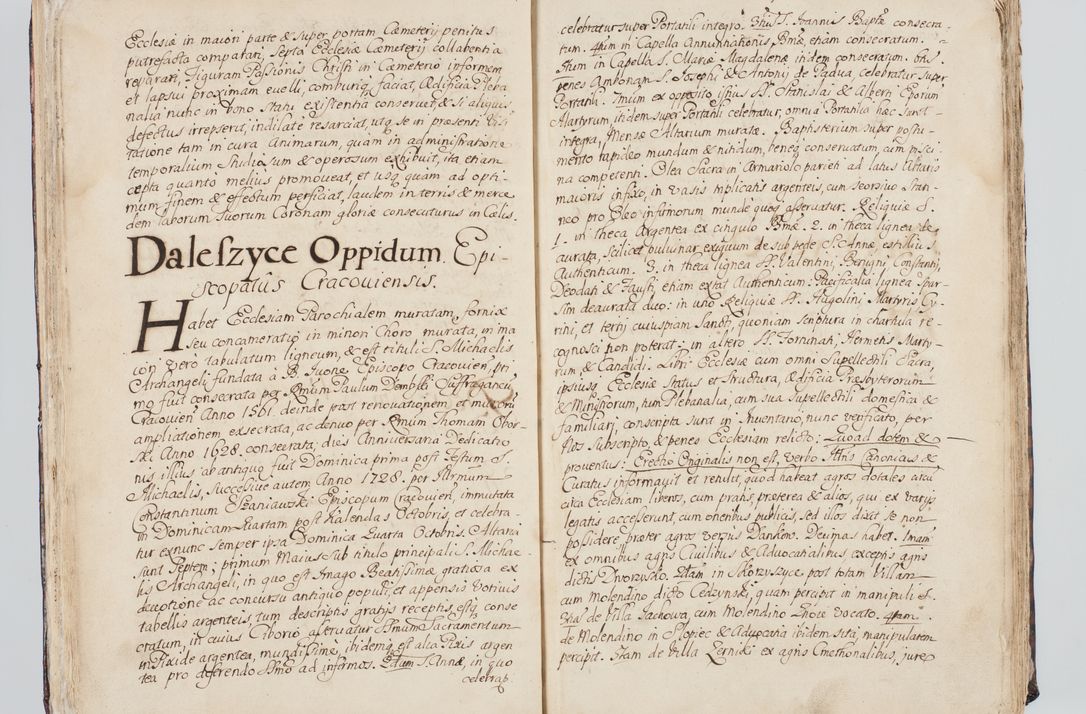 Ecclesiæ in maiori parte & super portam Cæmeterij penitus
putrefacta comparari, Septa Ecclesiæ Cæmeterij collabentia
reparari, Figuram Passionis Christi in Cæmeterio informem
et lapsui proximam euelli, comburiq; faciat, Ædificia Pleba
nalia nunc in bono statu existentia conseruet, & si aliquis
defectus irrepserit, indilate resarciat, utq; se in præsenti Visi
tatione tam in cura Animarum, quam in administratione
temporalium Studiosum & operosum exhibuit, ita etiam
cepta quanto melius promoueat, et usq; quam ad opti
mum finem & effectum perficiat, laudem in terris & merce
dem laborum suorum Coronam gloriæ consecuturus in Cælis.
Daleszyce Oppidum Epi-
scopatûs Cracouiensis.
Habet Ecclesiam Parochialem muratam, fornice
seu concameratio in minori Choro murata, in ma
iori vero tabulatum ligneum, & est tituli S. Michaelis
Archangeli fundata à B. Iuone Episcopo Cracouien, pri
mo fuit consecrata per Rndum Paulum Dembski Suffraganeum
Cracouien Anno 1561. deinde post renouationem et muroru
ampliationem exsecrata, ac denuo per Rndum Thomam Obor-
ski Anno 1628. consecrata; dies Anniuersaria Dedicatio
nis, illius ab antiquo fuit Dominica prima post Festum S.
Michaelis, Successiue autem Anno 1728. per Illrmum
Constantinum Szaniawski Episcopum Cracouien, immutata
in Dominicam Quartam post Kalendas Octobris, et celebra-
tur exnunc semper ipsa Dominica Quarta Octobris. Altaria
sunt Septem: primum Maius sub titulo principali S. Michae
lis Archangeli, in quo est Imago Beatissimæ gratiosa ex
deuotione ac concursu antiquo populi, et appensis votiuis
tabellis argenteis, tum descriptis gratijs receptis, estq; conse
cratum, in cuius Ciborio asseruatur Ssmum Sacramentum
in Pixide argentea, mundissime, ibidemq; est alta Pixis argen
tea pro deferendo Ssmo ad infirmos. 2dum S. Annæ, in quo
celebrat,
celebratur super Portatili integro. 3tiu S. Ioannis Baptæ consecra
tum. 4tum in Capella Annuntiationis Bmæ, etiam consecratum.
5tum in Capella S. Mariæ Magdalenæ itidem consecratum. 6tu
penes Ambonam S. Josephi & Antonij de Padua, celebratur super
Portatili. 7mum ex opposito ipsius SS. Stanislai & Alberti Eporum
Martyrum, itidem super Portatili celebratur, omnia Portatilia hæc sunt
integra, Mensæ Altarium muratæ. Baptisterium super postu-
mento lapideo mundum & nitidum, beneq; conseruatum, cum pisci
na competenti. Olea Sacra in Armariolo parieti ad latus Altaris
maioris infixo, in vasis triplicatis argenteis, cum seorsiuo Stan-
neo pro Oleo infirmorum munde quoq; asseruatur. Reliquiæ S.
1. in theca Argentea ex cingulo Bmæ. 2. in theca lignea de-
aurata, scilicet puluinar exiguum de sub pede S. Annæ, est illius
Authenticum. 3. in theca lignea S. Valentini, Benigni Constantij,
Deodati & Fausti, etiam extat Authenticum: Pacificalia lignea spar-
sim deaurata duo: in uno Reliquiæ SS. Hugolini Martyris Cy-
rini, et tertij cuiuspiam Sancti, quoniam scriptura in chartula re-
cognosci non poterat: in altero SS. Fortunati, Hermetis Marty-
rum & Candidi. Libri Ecclesiæ cum omni Supellectili Sacra,
ipsiusq; Ecclesiæ Status et structura, Ædificia Præsbyterorum
& Ministrorum, tum Plebanalia, cum sua Supellectili domestica &
familiari, conscripta sunt in Inuentario, nunc verificato, per
Nos subscripto, & penes Ecclesiam relicto: Quoad dotem &
prouentus: Erectio Originalis non est, verbo Illris Canonicus &
Curatus informauit et retulit, quod habeat agros dotales arcu
circa Ecclesiam liberos, cum pratis, præterea & alios, qui ex varijs
legatis accesserunt, cum oneribus publicis, sed illos dixit se non
possidere præter agros versus Dankow. Decimas habet. 1mam
ex omnibus agris Ciuilibus & Aduocatialibus exceptis agris
dictis Dworzysko. 2dam in Skorzyszyce post totam Villam
cum Molendino dicto Cedzynski, quam percipit in manipuli S.
3tia de Villa Sachowa cum Molendino Znoie vocato. 4tam
de Molendino in Słopiec & Aduocatia ibidem sita, manipulatim
percipit. 5tam de Villa Lernicki ex agris Cmethonalibus, jure